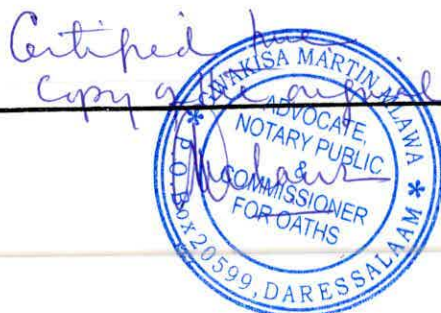 Certified true
copy of the original
WAKISA MARTIN MLAWA
ADVOCATE,
NOTARY PUBLIC
&
COMMISSIONER
FOR OATHS
P.O.Box 20599, DARESSALAAM